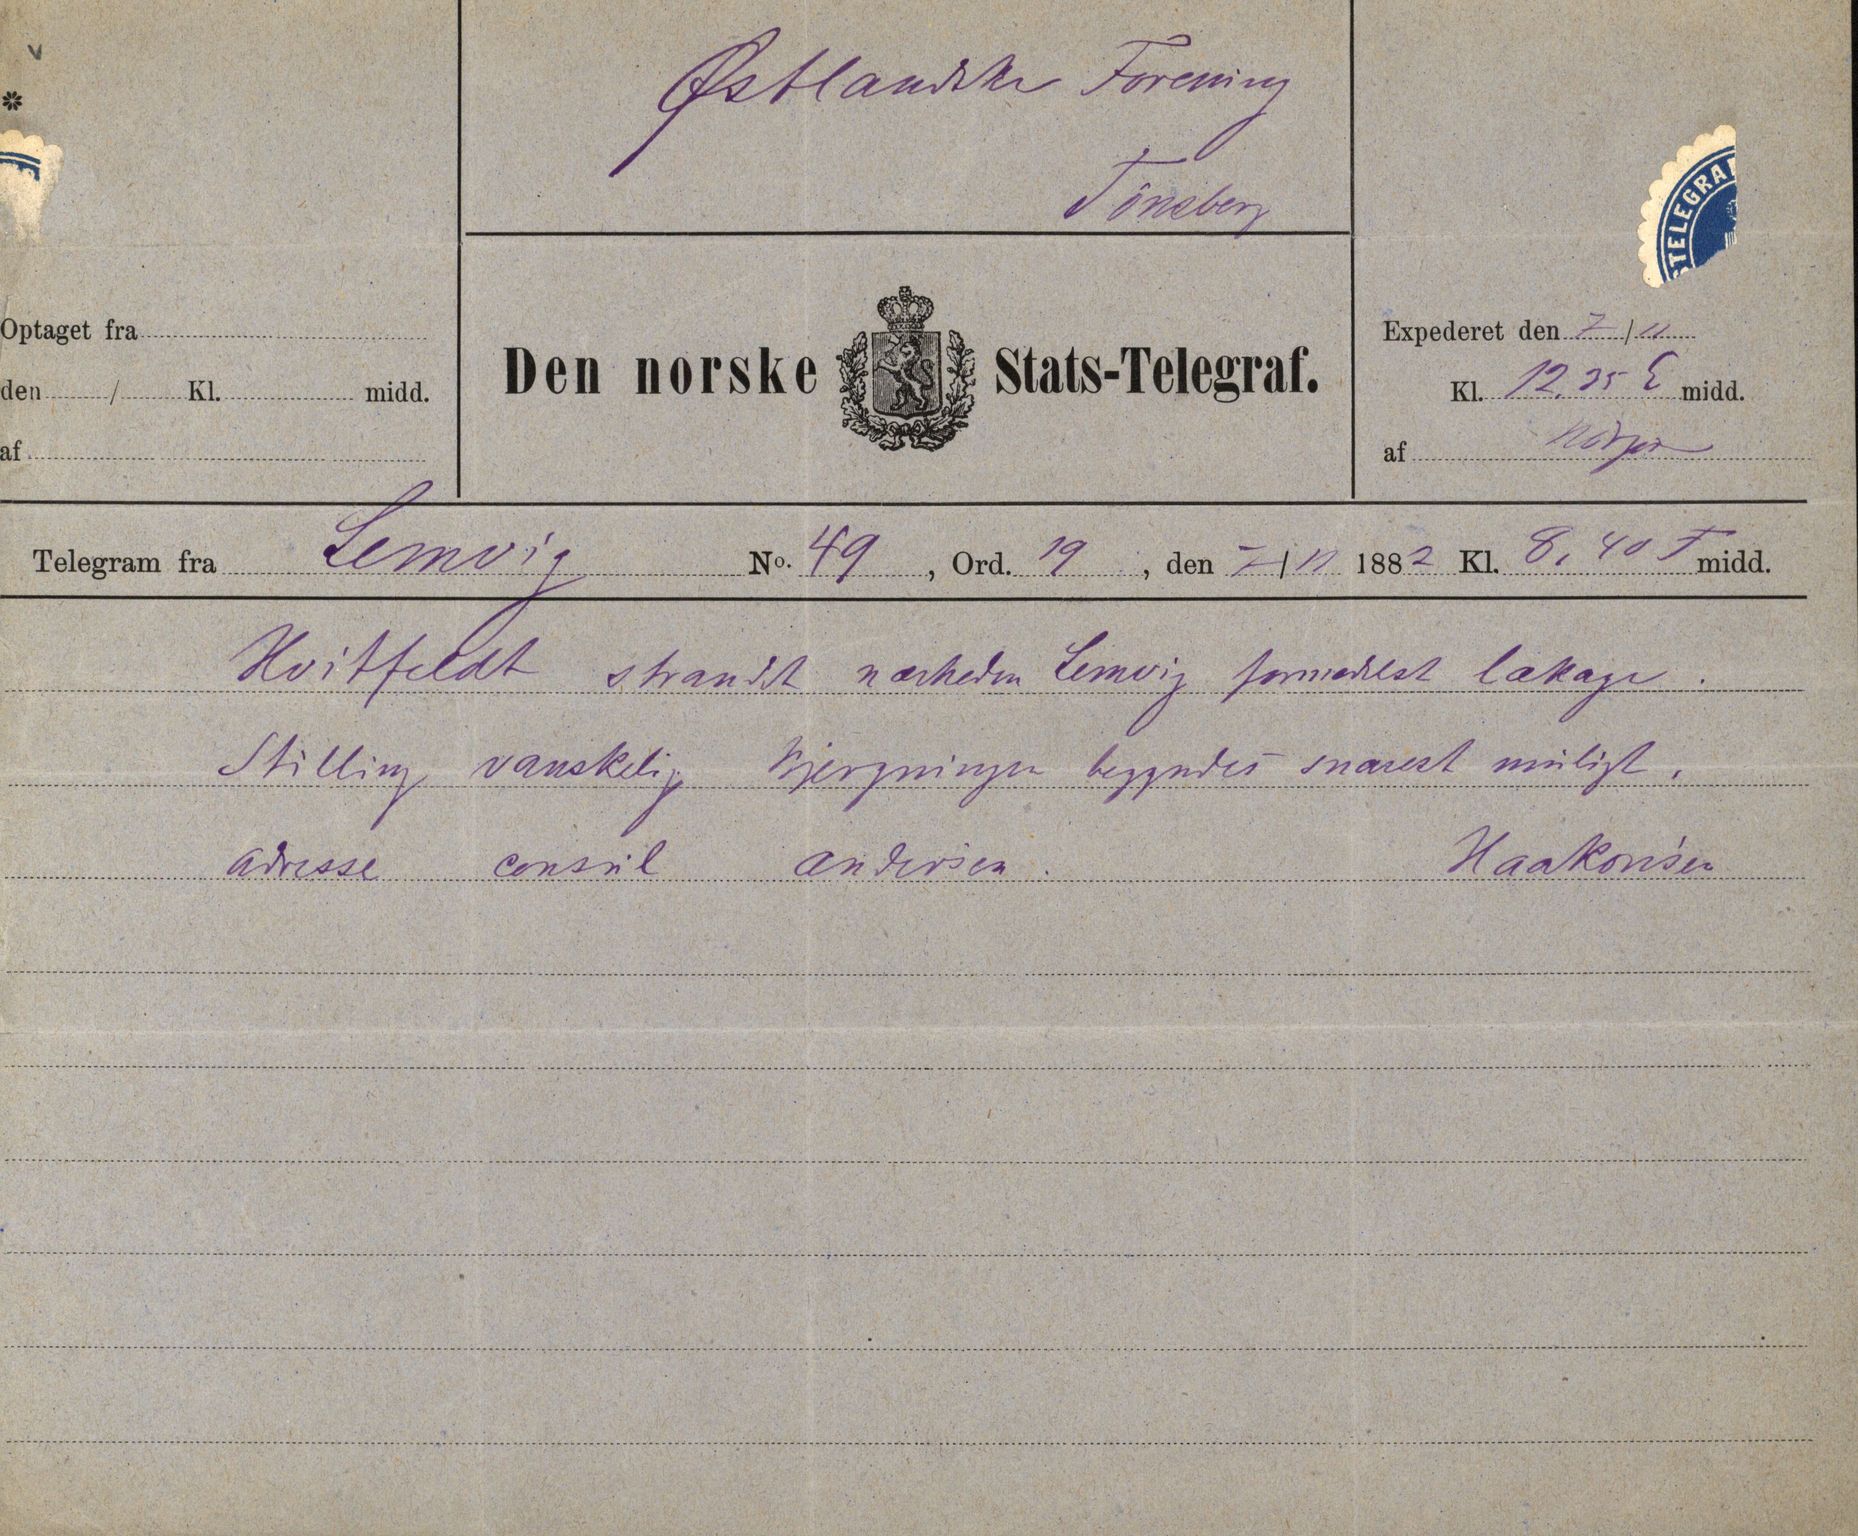 Østlandske Forening
Tönsberg
STELEGRA
Optaget fra
den / Kl. midd.
af
Den norske Stats-Telegraf.
Expederet den 7/11
Kl. 12.35 E midd.
af
Telegram fra Lemvig No. 49, Ord. 19, den 7/11 1882 Kl. 8,40 F midd.
Hvitfeldt strandet nærheden Lemvig formedelst lækage.
Stilling vanskelig bjergningen begyndes snarest muligt.
adresse consul andersen. Haakonsen